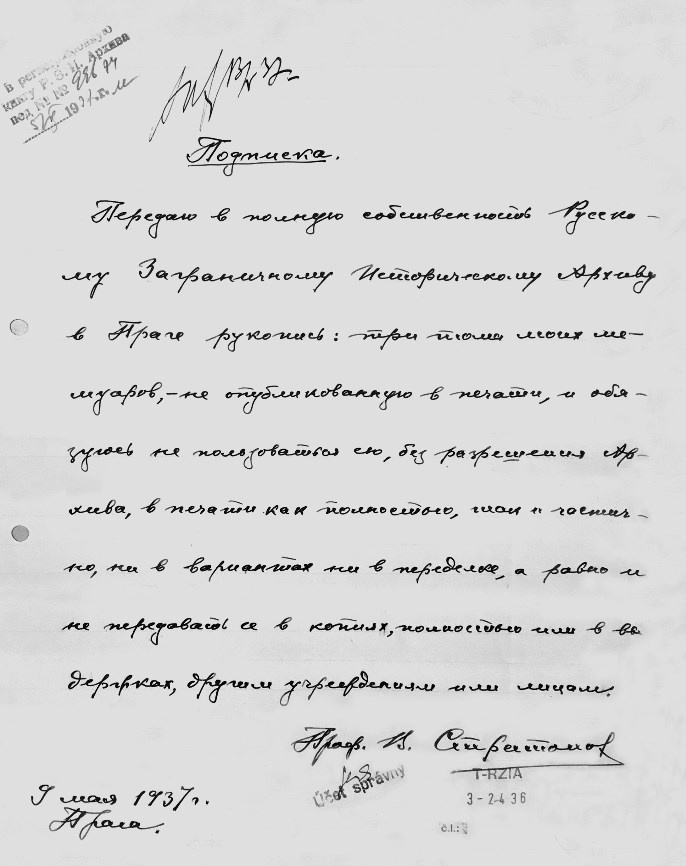 В регистрационную
книгу Р. З. И. Архива
под № № 236/37
5/VI 1937 г.
Подписка.
Передаю в полную собственность Русско-
му Заграничному Историческому Архиву
в Праге рукопись: три тома моих ме-
муаров,–не опубликованную в печати, и обя-
зуюсь не пользоваться ею, без разрешения Ар-
хива, в печати как полностью, так и частич-
но, ни в вариантах ни в переделке, а равно и
не передавать ее в копиях, полностью или в вы
держках, другим учреждениям или лицам.
Проф. В. Стратонов
Účet správny
T-RZIA
3-24 36
č.l.:
9 мая 1937 г.
Прага.